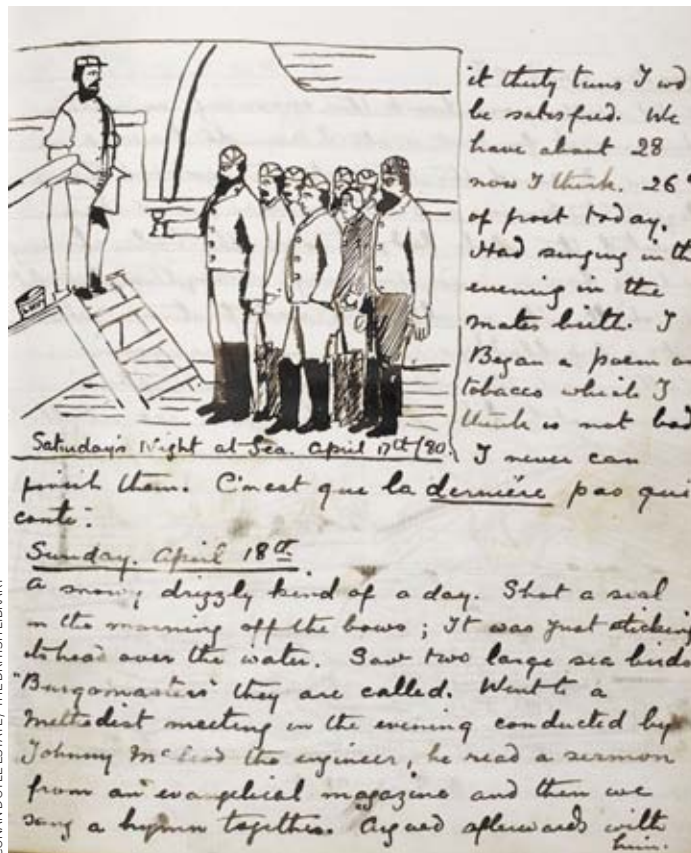 it thirty tuns I wd
be satisfied. We
have about 28
now I think. 26°
of frost today.
Had singing in the
evening in the
mates berth. I
Began a poem on
tobacco which I
think is not bad
I never can
Saturday's Night at Sea. April 17th/80.
finish them. C'nest que la dernière pas qui
conte.
Sunday. April 18th
A snowy drizzly kind of a day. Shot a seal
in the morning off the bows; It was just sticking
its head over the water. Saw two large sea birds
"Burgomasters" they are called. Went to a
Methodist meeting in the evening conducted by
Johnny McLeod the engineer, he read a sermon
from an evangelical magazine and then we
sang a hymn together. Argued afterwards with
him.
CONAN DOYLE ESTATE/ THE BRITISH LIBRARY